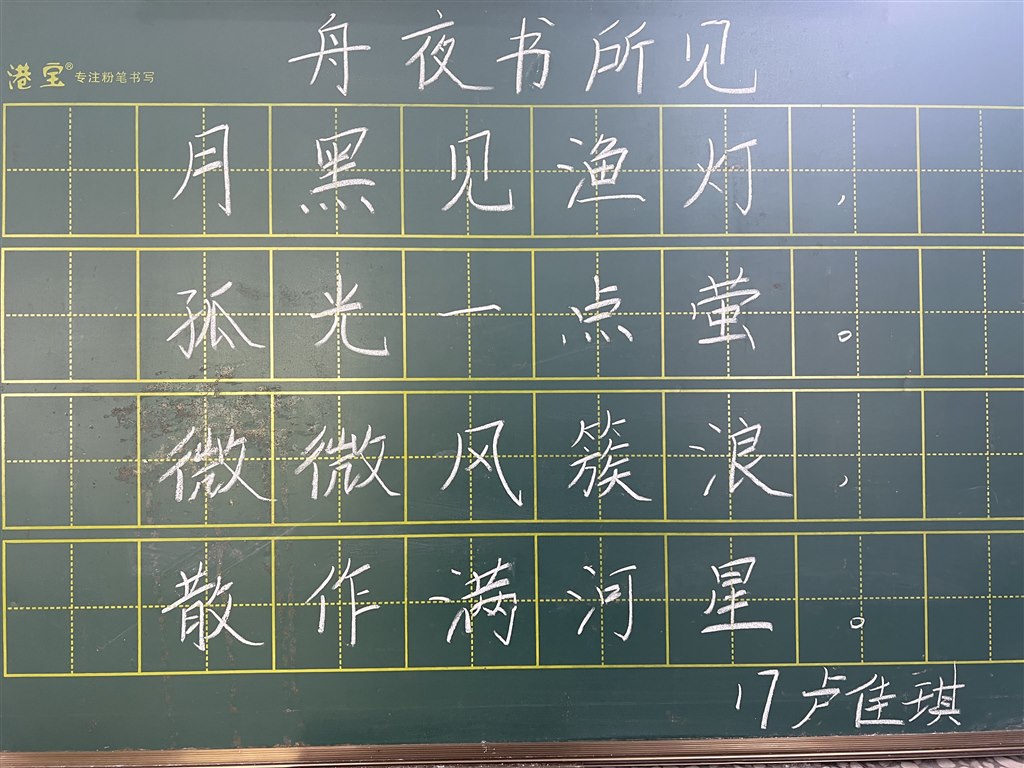 舟夜书所见
港宝® 专注粉笔书写
月黑见渔灯，
孤光一点萤。
微微风簇浪，
散作满河星。
17卢佳琪